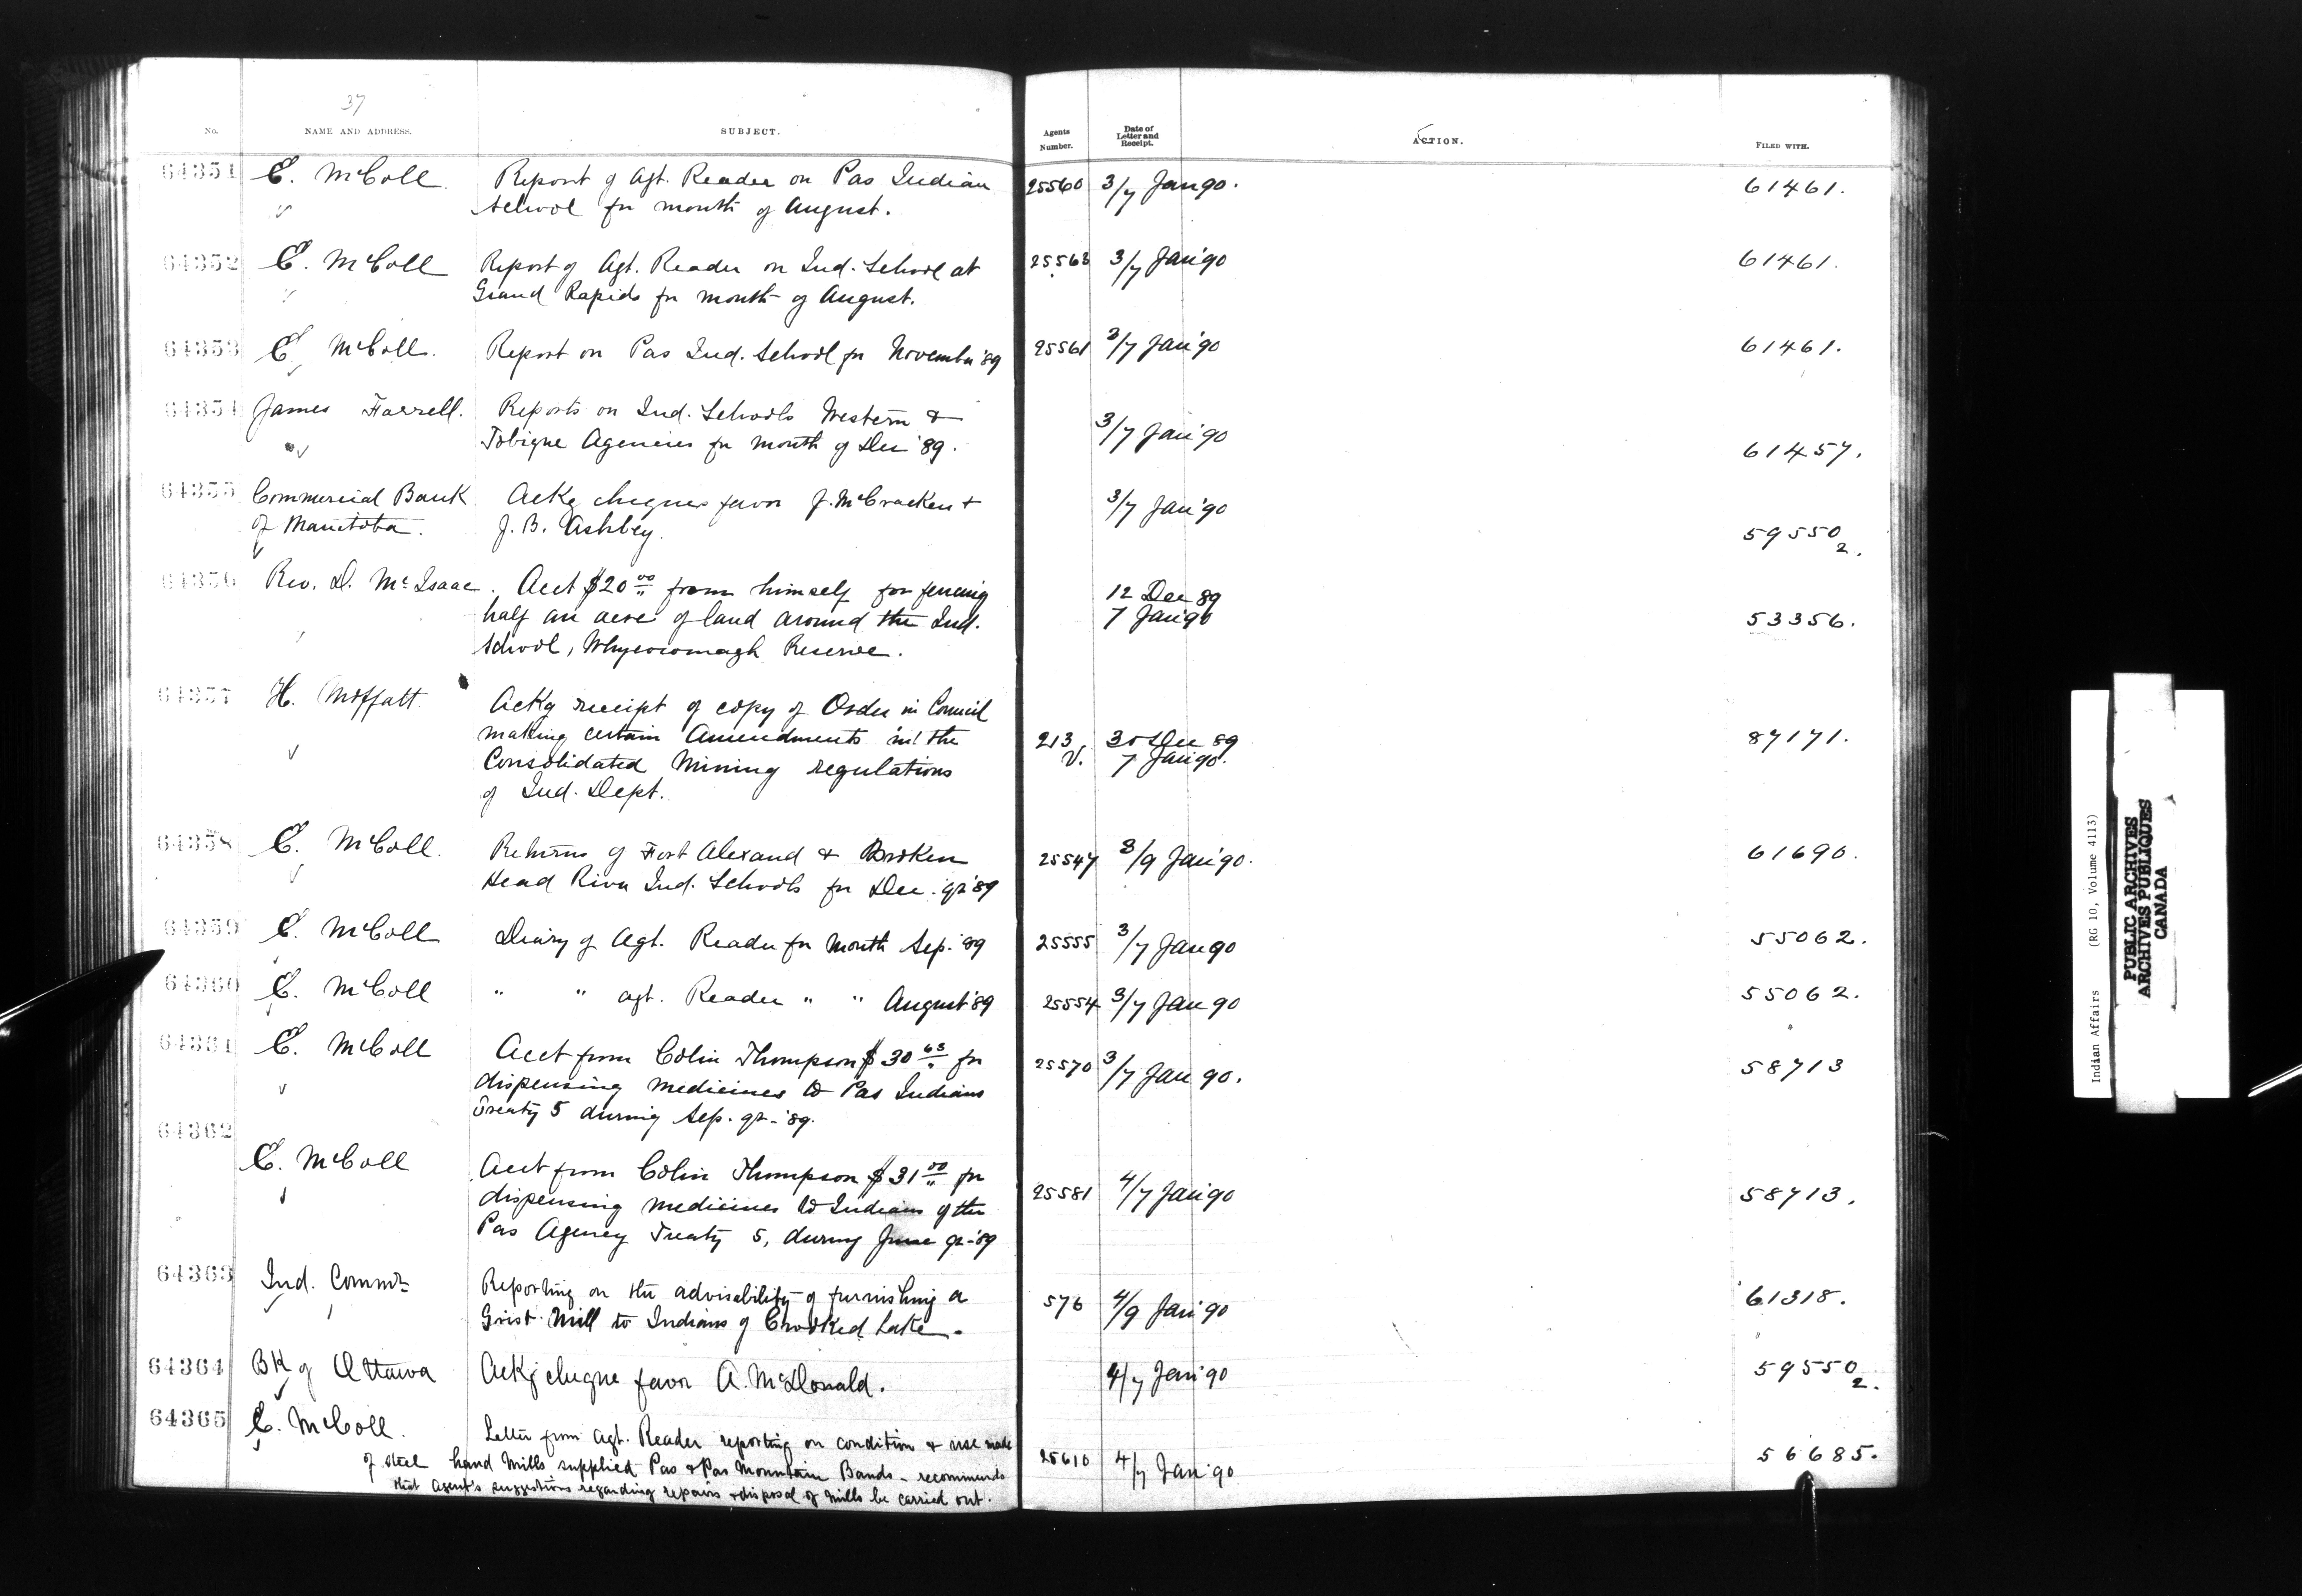 37
No. NAME AND ADDRESS. SUBJECT. Agents Number. Date of Letter and Receipt. ACTION. FILED WITH.
64351 E. McColl. Report of Agt. Reader on Pas Indian 25560 3/7 Jan 90. 61461.
School for month of August.
64352 E. McColl Report of Agt. Reader on Ind. School at 25563 3/7 Jan '90 61461.
Grand Rapids for month of August.
64353 E. McColl. Report on Pas Ind. School for November '89 25561 3/7 Jan '90 61461.
64354 James Farrell. Reports on Ind. Schools Western & 3/7 Jan '90
Tobique Agencies for month of Dec '89. 61457.
64355 Commercial Bank Ackg cheques favor J. McCracken + 3/7 Jan '90
of Manitoba. J. B. Ashbey. 59550 2.
64356 Rev. D. McIsaac. Acct $20 00 from himself for fencing 12 Dec 89
half an acre of land around the Ind. 7 Jan '90 53356.
School, Whycocomagh Reserve.
64357 H. Moffatt Ackg receipt of copy of Order in Council
making certain Amendments in the 213 30 Dec 89 87171.
Consolidated Mining regulations V. 7 Jan '90.
of Ind. Dept.
64358 E. McColl. Returns of Fort Alexand & Broken 25547 3/9 Jan '90. 61690.
Head River Ind. Schools for Dec. qr '89
64359 E. McColl Diary of Agt. Reader for Month Sep. '89 25555 3/7 Jan 90 55062.
64360 E. McColl " " agt. Reader " " August '89 25554 3/7 Jan 90 55062.
64361 E. McColl Acct from Colin Thompson $30 63 for 25570 3/7 Jan 90. 58713
dispensing medicines to Pas Indians
Treaty 5 during Sep. qr - '89.
64362
E. McColl Acct from Colin Thompson $31 00 for
dispensing medicines to Indians of the 25581 4/7 Jan '90 58713.
Pas Agency Treaty 5, during June qr - '89
64363 Ind. Commr Reporting on the advisability of furnishing a 576 4/9 Jan '90 61318.
Grist Mill to Indians of Crooked Lake.
64364 Bk of Ottawa Ackg cheque favor A. McDonald. 4/7 Jan '90 59550 2.
64365 E. McColl. Letter from Agt. Reader reporting on condition & use made
of steel hand mills supplied Pas & Pas Mountain Bands - recommends 25610 4/7 Jan '90 56685.
that Agent's suggestions regarding repairs & disposal of mills be carried out.
Indian Affairs (RG 10, Volume 4113)
PUBLIC ARCHIVES
ARCHIVES PUBLIQUES
CANADA